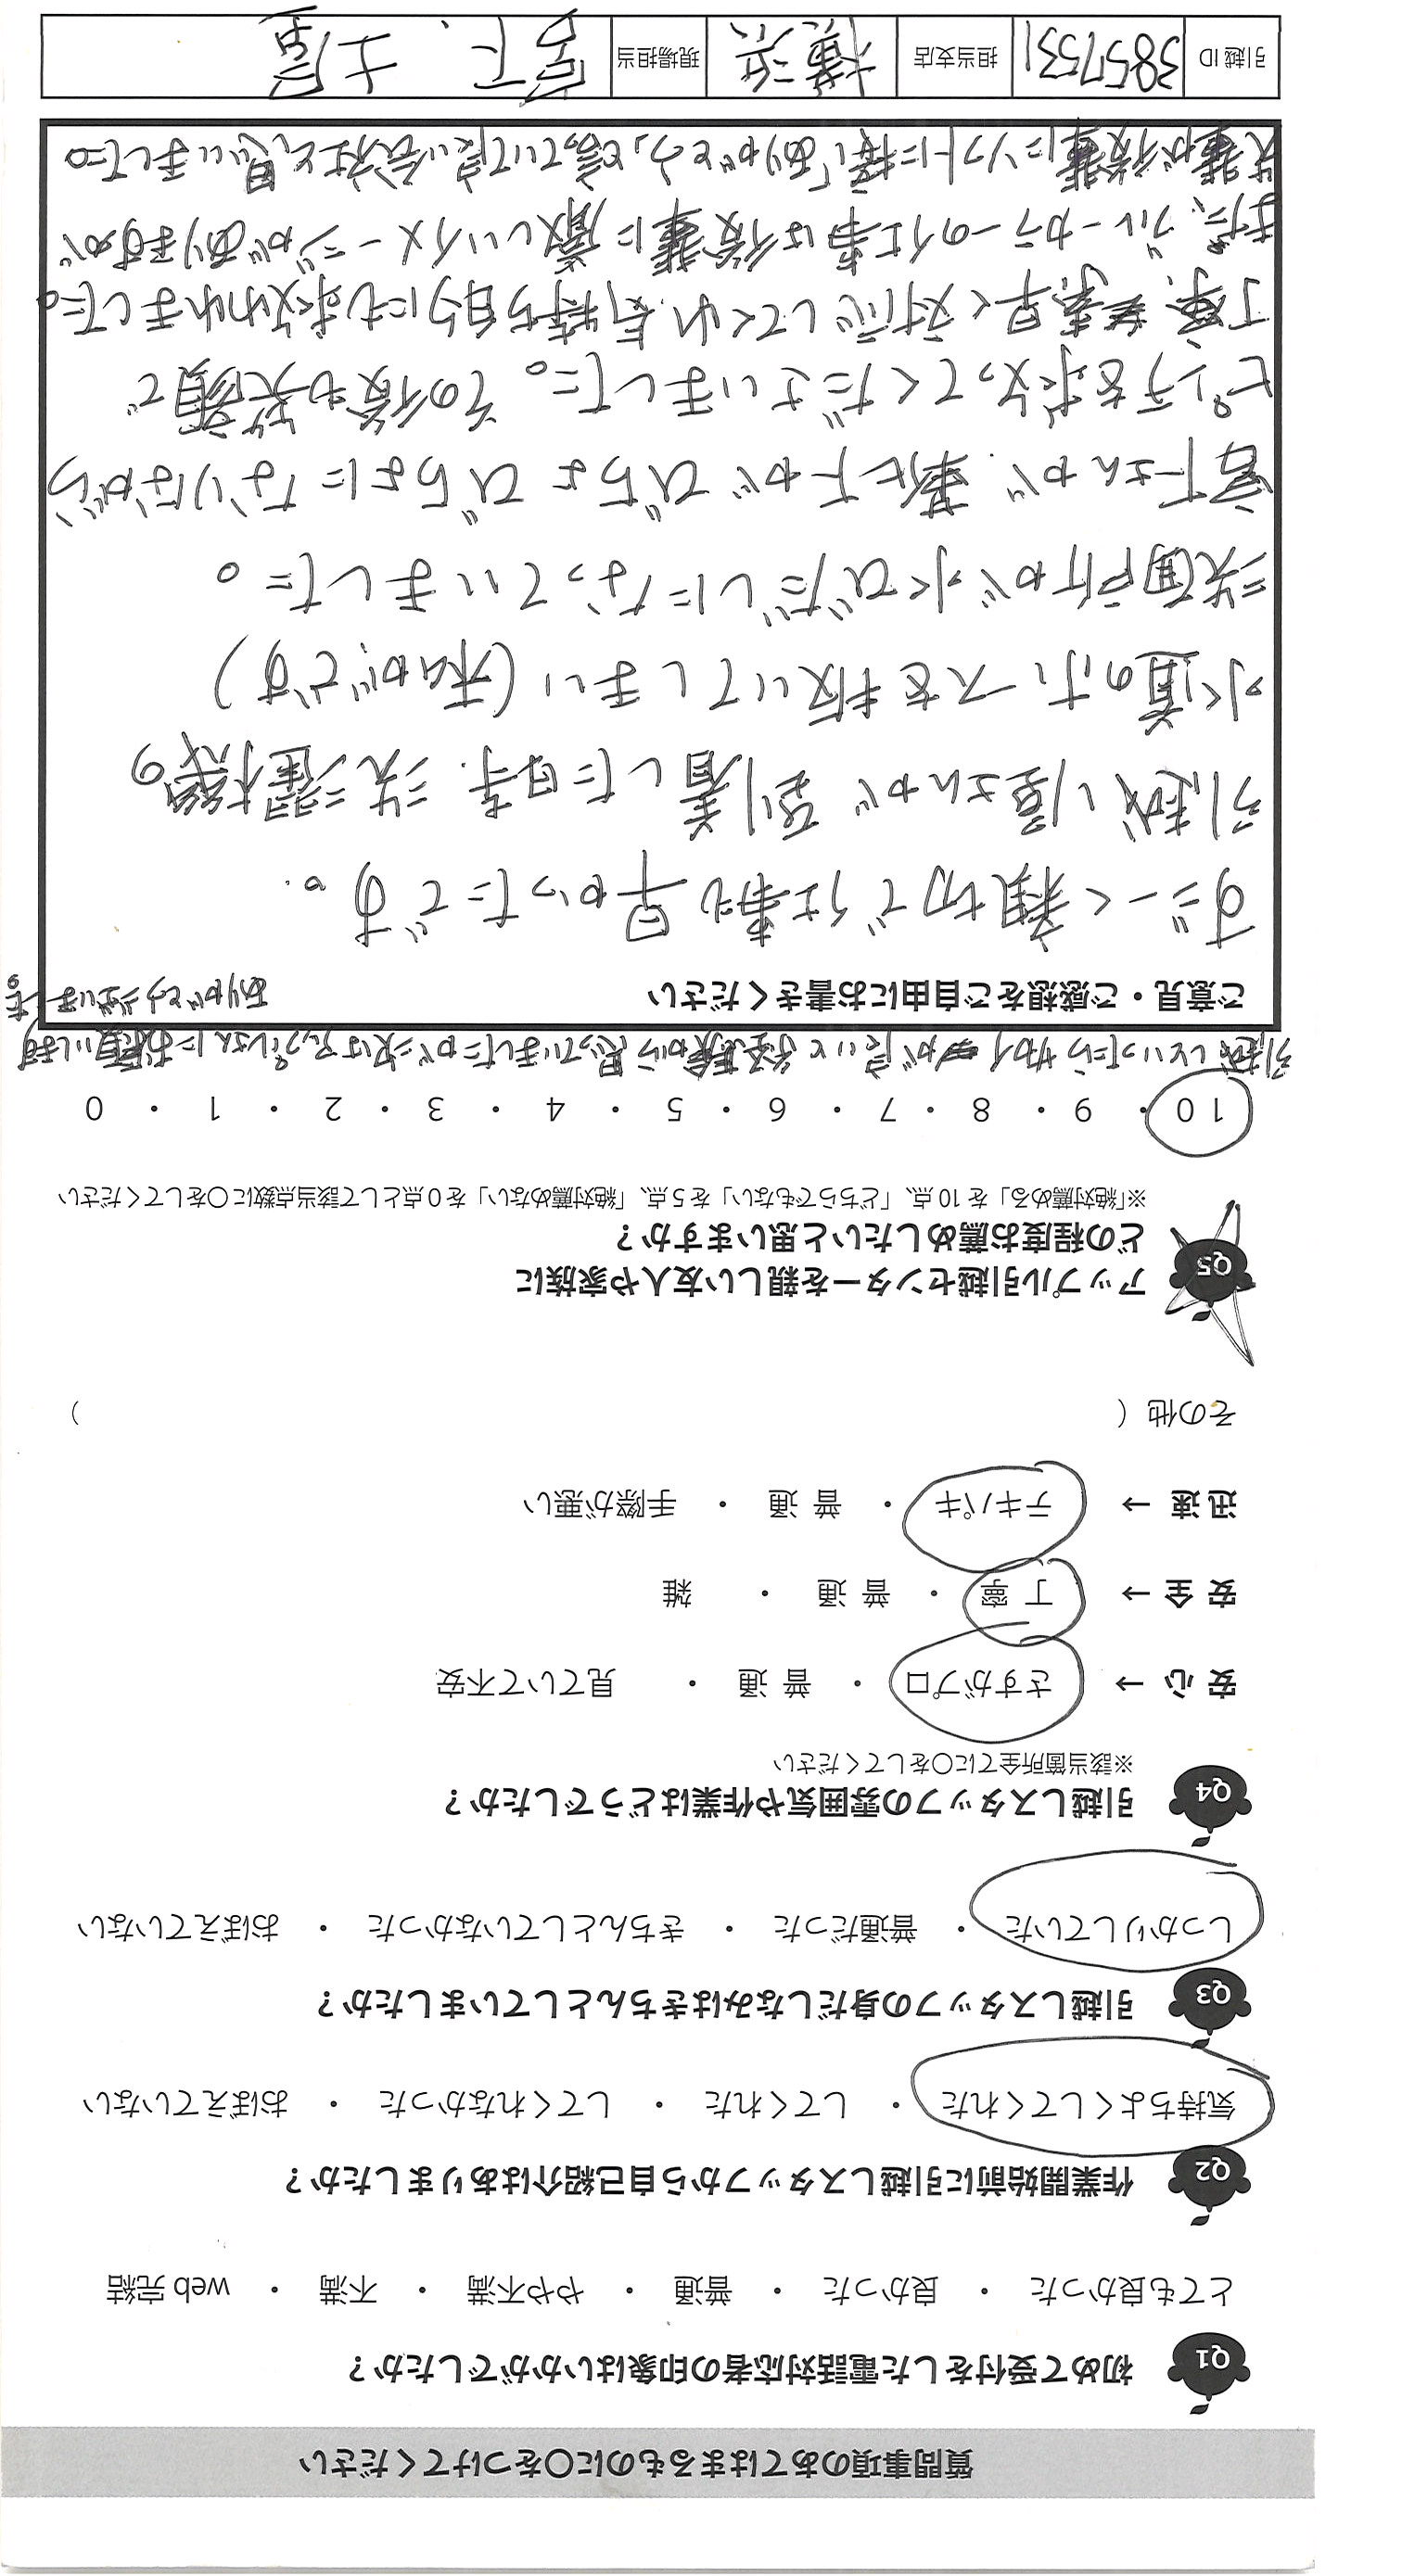 質問事項のあてはまるものに○をつけてください
Q1 初めて受付をした電話対応者の印象はいかがでしたか？
とても良かった ・ 良かった ・ 普通 ・ やや不満 ・ 不満 ・ web 完結
Q2 作業開始前に引越しスタッフから自己紹介はありましたか？
気持ちよくしてくれた ・ してくれた ・ してくれなかった ・ おぼえていない
Q3 引越しスタッフの身だしなみはきちんとしていましたか？
しっかりしていた ・ 普通だった ・ きちんとしていなかった ・ おぼえていない
Q4 引越しスタッフの雰囲気や作業はどうでしたか？
※該当箇所全てに○をしてください
安 心 → さすがプロ ・ 普 通 ・ 見ていて不安
安 全 → 丁 寧 ・ 普 通 ・ 雑
迅 速 → テキパキ ・ 普 通 ・ 手際が悪い
その他（ ）
Q5 アップル引越センターを親しい友人や家族に
どの程度お薦めしたいと思いますか？
※「絶対薦める」を 10 点、「どちらでもない」を 5 点、「絶対薦めない」を 0 点として該当点数に○をしてください
10 ・ 9 ・ 8 ・ 7 ・ 6 ・ 5 ・ 4 ・ 3 ・ 2 ・ 1 ・ 0
引越しといったらサカイが良いと経験から思っていましたが次はアップルさんにお願いします
ご意見・ご感想をご自由にお書きください
ありがとうございました。
すごーく親切で仕事も早かったです。
引越し屋さんが到着した時、洗濯機の
水道のホースを抜いてしまい（私がです）
洗面所が水びだしになっていました。
宮下さんが、靴下がびちょびちょになりながら
ピンチを救ってくださいました。その後も笑顔で
丁寧、素早く対応してくれ、気持ち的にも救われました。
また、ブルーカラーの仕事は後輩に厳しいイメージがありますが
先輩が後輩にソフトに接し「ありがとう」と言っていて良い会社と思いました。
引越 ID 3857531 担当支店 横浜 現場担当 宮下、土屋